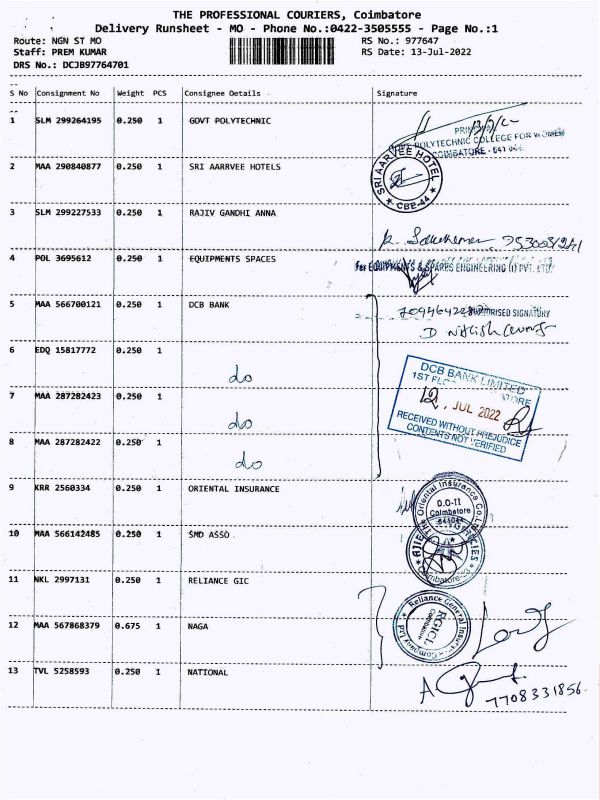 THE PROFESSIONAL COURIERS, Coimbatore
Delivery Runsheet - MO - Phone No.:0422-3505555 - Page No.:1
Route: NGN ST MO RS No.: 977647
Staff: PREM KUMAR RS Date: 13-Jul-2022
DRS No.: DCJB97764701
S No Consignment No Weight PCS Consignee Details Signature
1 SLM 299264195 0.250 1 GOVT POLYTECHNIC
POLYTECHNIC COLLEGE FOR WOMEN
COIMBATORE - 641 044
2 MAA 290840877 0.250 1 SRI AARRVEE HOTELS
SRI AARVEE HOTEL
CBE-44
3 SLM 299227533 0.250 1 RAJIV GANDHI ANNA
4 POL 3695612 0.250 1 EQUIPMENTS SPACES
For EQUIPMENTS & SPARES ENGINEERING (I) PVT. LTD.
5 MAA 566700121 0.250 1 DCB BANK
SIGNATORY
6 EDQ 15817772 0.250 1
do
7 MAA 287282423 0.250 1
do
8 MAA 287282422 0.250 1
do
DCB BANK LIMITED
1ST
12 JUL 2022
RECEIVED WITHOUT PREJUDICE
CONTENTS NOT VERIFIED
9 KRR 2560334 0.250 1 ORIENTAL INSURANCE
The Oriental Insurance Co.
D.O-II
Coimbatore
10 MAA 566142485 0.250 1 SMD ASSO
11 NKL 2997131 0.250 1 RELIANCE GIC
Reliance General Insurance Company
RGICL
12 MAA 567868379 0.675 1 NAGA
13 TVL 5258593 0.250 1 NATIONAL
7708331856